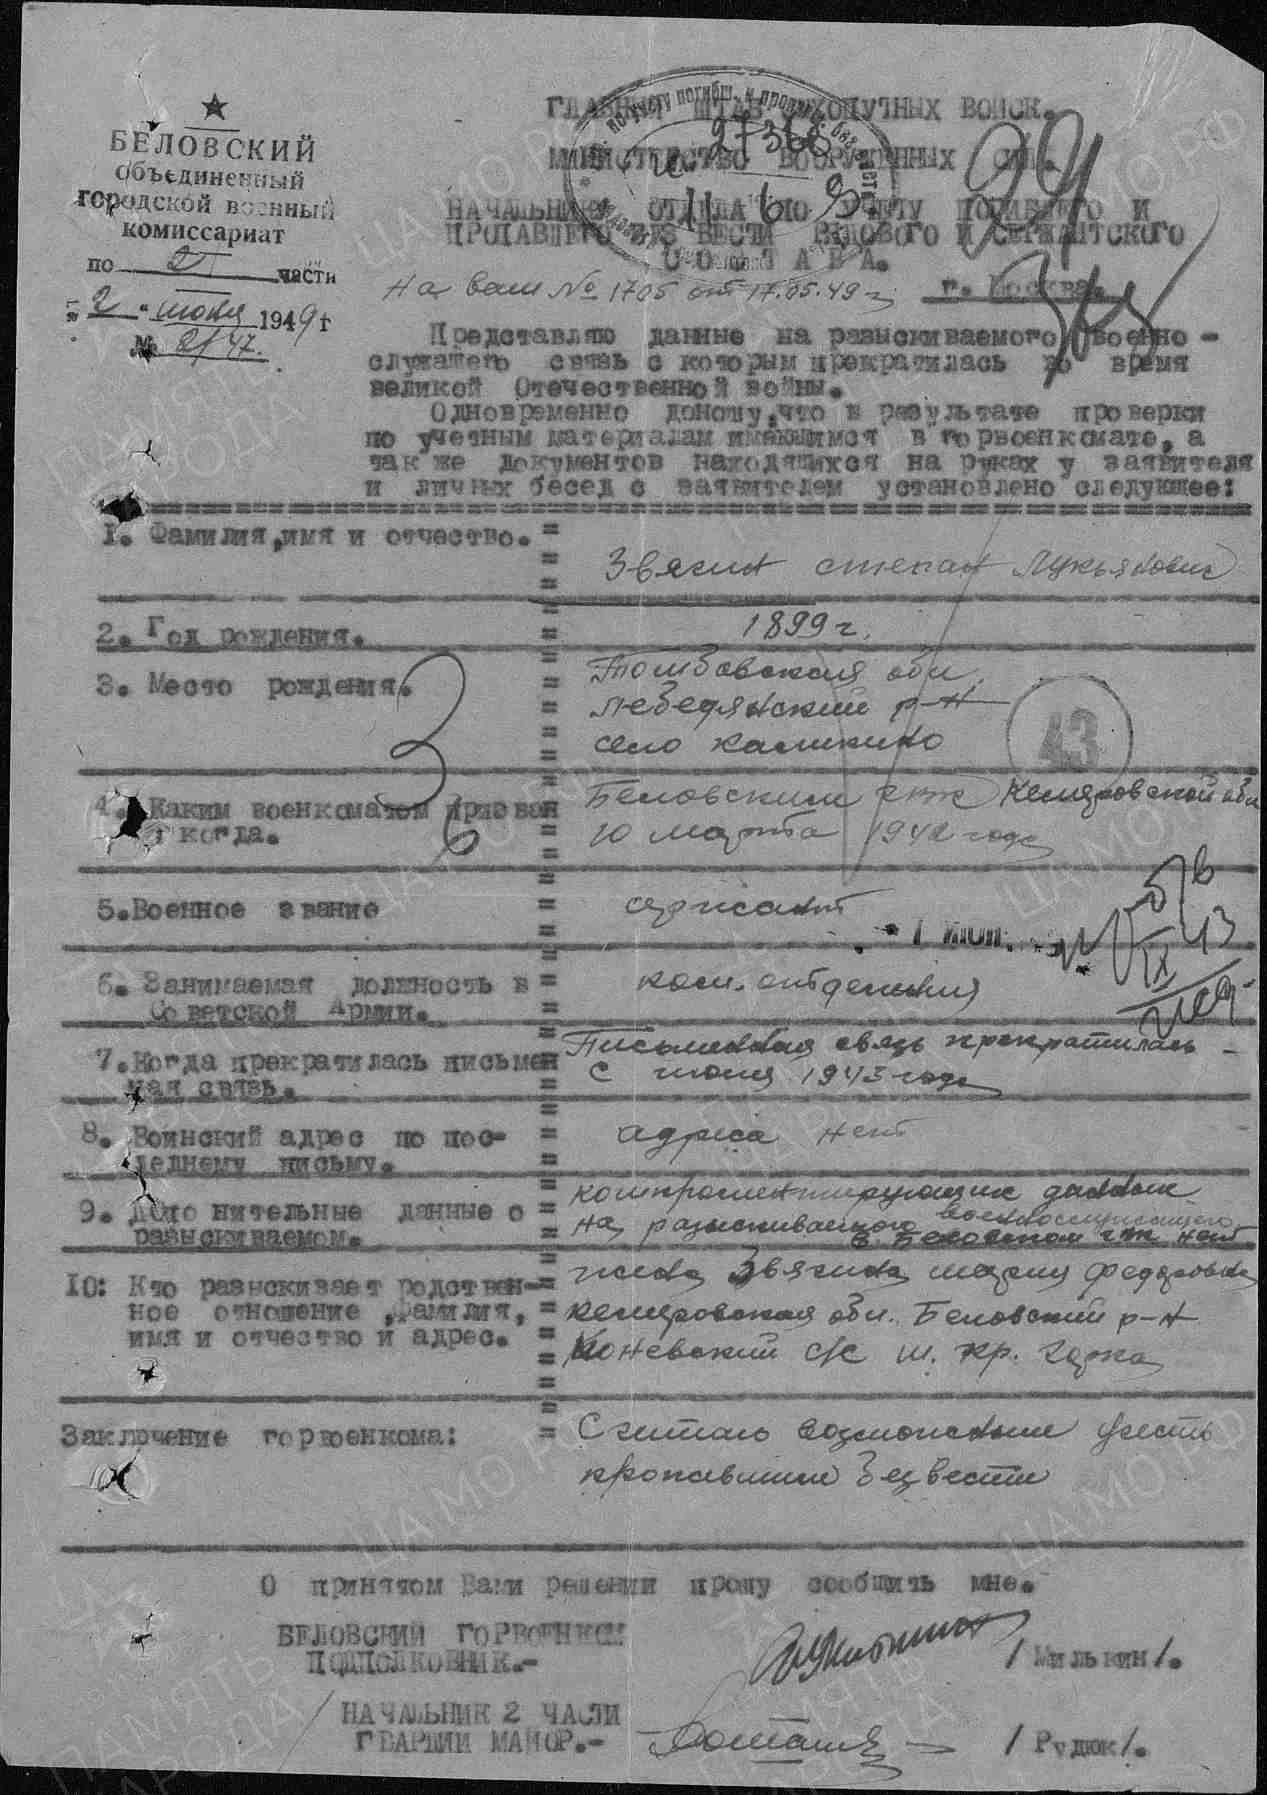 БЕЛОВСКИЙ
объединенный
городской военный
комиссариат
по 2 части
"2" июня 1949 г
№ 2/47.
ГЛАВНЫЙ ШТАБ СУХОПУТНЫХ ВОЙСК.
МИНИСТЕРСТВО ВООРУЖЕННЫХ СИЛ.
НАЧАЛЬНИКУ ОТДЕЛА ПО УЧЕТУ ПОГИБШЕГО И
ПРОПАВШЕГО БЕЗ ВЕСТИ РЯДОВОГО И СЕРЖАНТСКОГО
СОСТАВА.
по учету погибш. и пропавш. без вести
27368
11 6 9
99
На ваш № 1705 от 17.05.49 г
г. Москва.
Представляю данные на разыскиваемого военно-
служащего связь с которым прекратилась во время
великой Отечественной войны.
Одновременно доношу,что в результате проверки
по учетным материалам имеющимся в горвоенкомате, а
так же документов находящихся на руках у заявителя
и личных бесед с заявителем установлено следующее:
1. Фамилия,имя и отчество. Звягин степан Лукьянович
2. Год рождения. 1899 г.
3. Место рождения. Томбовская обл.
лебедянский р-н
село каликино
43
4. Каким военкоматом призван и когда. Беловским гвк Кемеровской обл
10 марта 1942 года
5.Военное звание сержант
1 июн.
IX 43
6. Занимаемая должность в Советской Армии. ком. отделения
7.Когда прекратилась письмен
ная связь. Письменная связь прекратилась
с июня 1943 года
8. Воинский адрес по пос-
леднему письму. адреса нет
9. Дополнительные данные о
разыскиваемом. компрометирующих данных
на разыскиваемого военнослужащего
в Беловском гвк нет
10: Кто разыскивает родствен-
ное отношение ,фамилия,
имя и отчество и адрес. жена Звягина мария федоровна
кемеровская обл. Беловский р-н
Коневский с/с ш. кр. горка
Заключение горвоенкома: Считаю возможным учесть
пропавшим безвести
О принятом Вами решении прошу сообщить мне.
БЕЛОВСКИЙ ГОРВОЕНКОМ
ПОДПОЛКОВНИК.- /Милькин/.
НАЧАЛЬНИК 2 ЧАСТИ
ГВАРДИИ МАЙОР.- /Рудюк/.
ПАМЯТЬ НАРОДА
ЦАМО.РФ